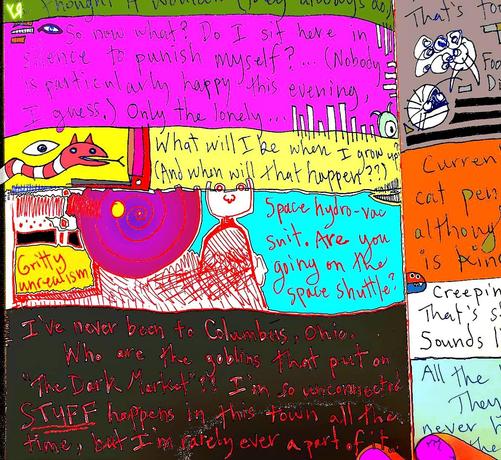 thought it wouldn't
So now what? Do I sit here in
silence to punish myself?... (Nobody
is particularly happy this evening,
I guess.) Only the lonely...
What will I be when I grow up?
(And when will that happen???)
Gritty
unrealism
Space hydro-vac
suit. Are you
going on the
space shuttle?
I've never been to Columbus, Ohio.
Who are the goblins that put on
"The Dark Market"?? I'm so unconnected
STUFF happens in this town all the
time, but I'm rarely ever a part of it.
That's
Foo
D
Curren
cat pen
althoug
"is
Creepin
That's s
Sounds l
All the
They
never
the